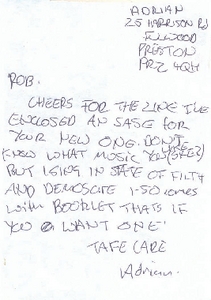 ADRIAN
25 HARRISON RD
FULWOOD
PRESTON
PR2 4QH
ROB.
CHEERS FOR THE ZINE I'VE
ENCLOSED AN SASE FOR
YOUR NEW ONE. DON'T
KNOW WHAT MUSIC YOU
BUT I SING IN STATE OF FILTH
AND DEMOS 1-50
WITH BOOKLET THATS IF
YOU WANT ONE.
TAKE CARE
Adrian.